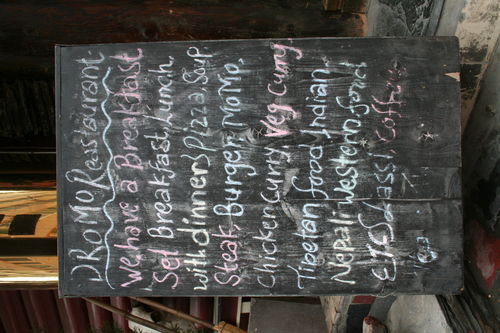 DROMO Reastaurant.
We have a Breakfast
Set Breakfast, Lunch,
with dinner's Pizza, Soup
Steak burger MoMo.
Chicken curry Veg curry
Tibetan food Indian
Nepali Western food
Lassi Coffee
Tea